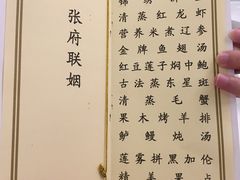 张府联姻
清蒸红龙虾
营养米煮辽参
金牌鱼翅汤
红豆莲子焖中鲍
古法蒸东星斑
清蒸毛蟹
果木烤羊排
鲈鳗炖汤
莲雾拼黑加伦
精美